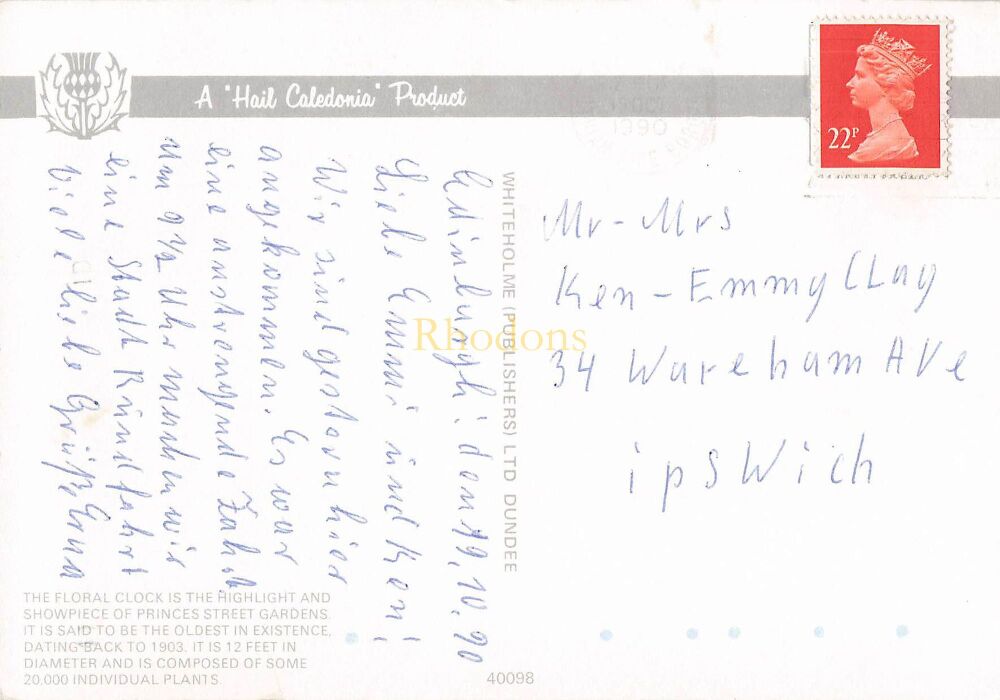 A "Hail Caledonia" Product
22P
1990
Edinburgh! den 19.10.90
Liebe Emmi und Ken!
Wir sind gestern hier
angekommen. Es war
eine anstrengende Fahrt.
Um 9 1/2 Uhr machen wir
eine Stadt Rundfahrt
Viele liebe Grüße Erna
WHITEHOLME (PUBLISHERS) LTD DUNDEE
Mr-Mrs
Ken-Emmy Clay
34 Wareham Ave
ipswich
Rhodons
THE FLORAL CLOCK IS THE HIGHLIGHT AND
SHOWPIECE OF PRINCES STREET GARDENS.
IT IS SAID TO BE THE OLDEST IN EXISTENCE,
DATING BACK TO 1903. IT IS 12 FEET IN
DIAMETER AND IS COMPOSED OF SOME
20,000 INDIVIDUAL PLANTS.
40098